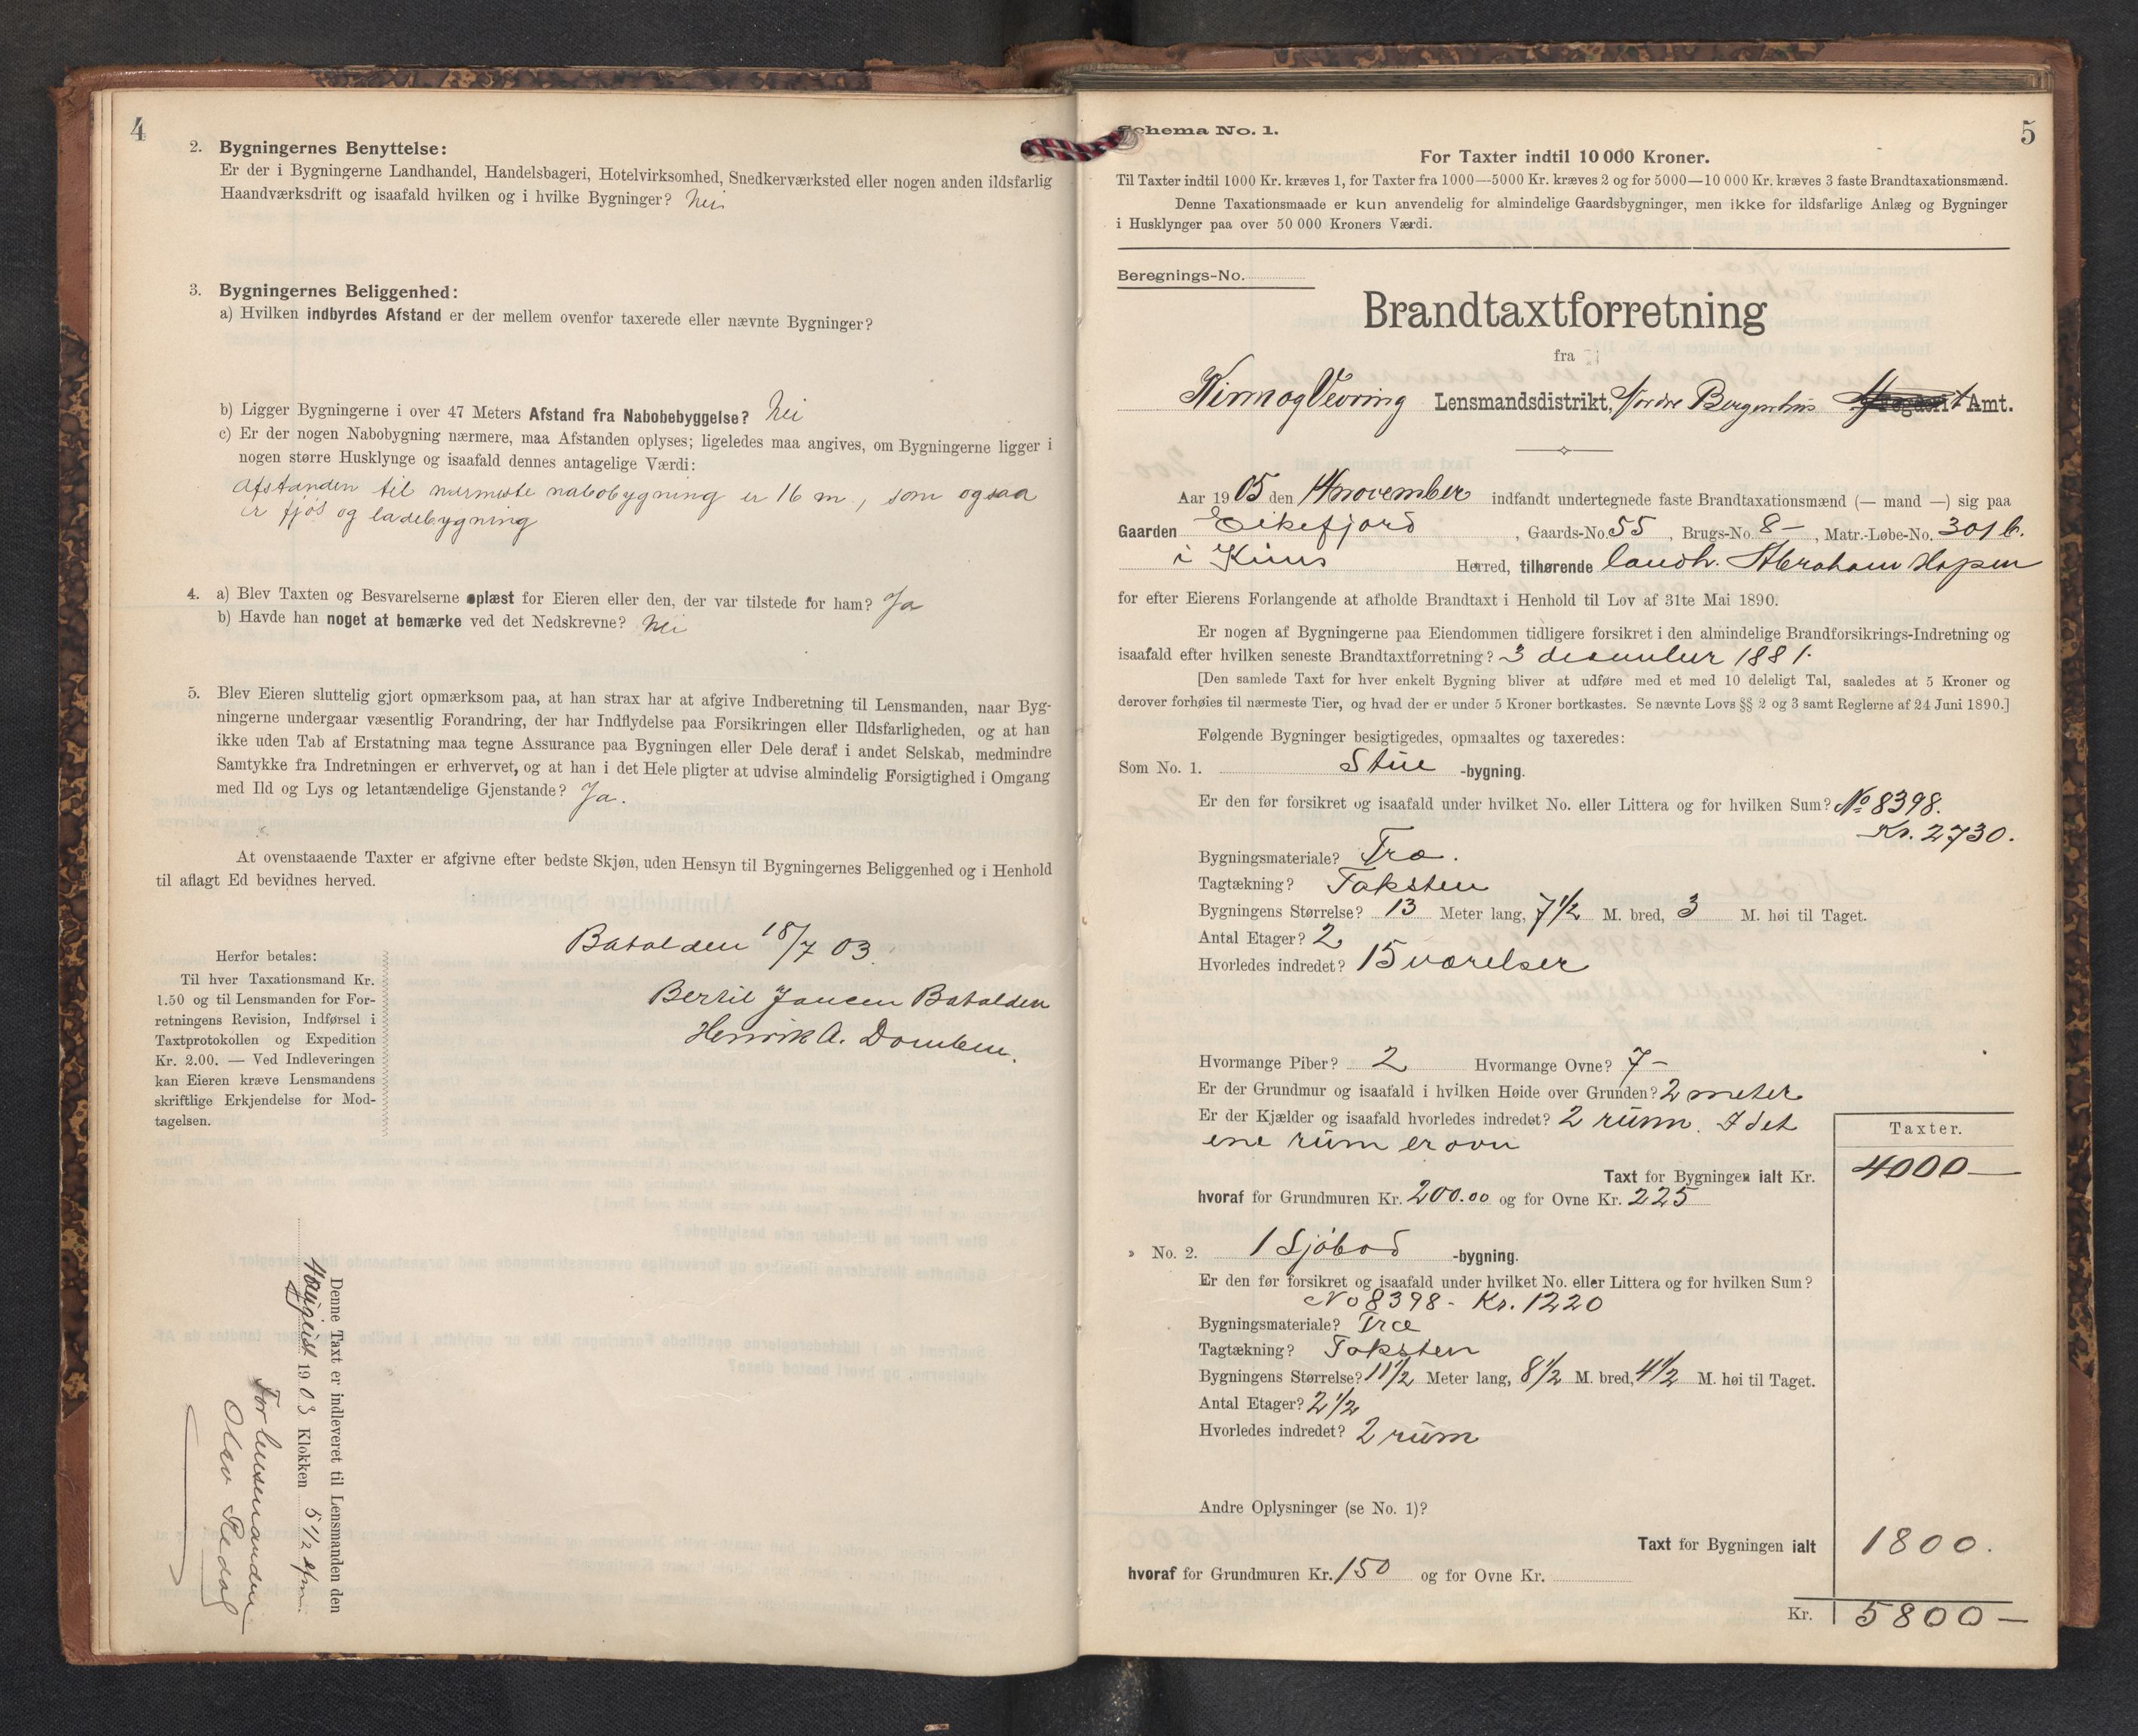 4
2. Bygningernes Benyttelse:
Er der i Bygningerne Landhandel, Handelsbageri, Hotelvirksomhed, Snedkerværksted eller nogen anden ildsfarlig
Haandværksdrift og isaafald hvilken og i hvilke Bygninger? Nei
3. Bygningernes Beliggenhed:
a) Hvilken indbyrdes Afstand er der mellem ovenfor taxerede eller nævnte Bygninger?
b) Ligger Bygningerne i over 47 Meters Afstand fra Nabobebyggelse? Nei
c) Er der nogen Nabobygning nærmere, maa Afstanden oplyses; ligeledes maa angives, om Bygningerne ligger i
nogen større Husklynge og isaafald dennes antagelige Værdi:
Afstanden til nærmeste nabobygning er 16 m, som ogsaa
er fjøs og ladebygning
4. a) Blev Taxten og Besvarelserne oplæst for Eieren eller den, der var tilstede for ham? Ja
b) Havde han noget at bemærke ved det Nedskrevne? Nei
5. Blev Eieren sluttelig gjort opmærksom paa, at han strax har at afgive Indberetning til Lensmanden, naar Byg-
ningerne undergaar væsentlig Forandring, der har Indflydelse paa Forsikringen eller Ildsfarligheden, og at han
ikke uden Tab af Erstatning maa tegne Assurance paa Bygningen eller Dele deraf i andet Selskab, medmindre
Samtykke fra Indretningen er erhvervet, og at han i det Hele pligter at udvise almindelig Forsigtighed i Omgang
med Ild og Lys og letantændelige Gjenstande? Ja.
At ovenstaaende Taxter er afgivne efter bedste Skjøn, uden Hensyn til Bygningernes Beliggenhed og i Henhold
til aflagt Ed bevidnes herved.
Batalden 18/7 03.
Bertil Jansen Batalden
Henrik A. Domben.
Herfor betales:
Til hver Taxationsmand Kr.
1.50 og til Lensmanden for For-
retningens Revision, Indførsel i
Taxtprotokollen og Expedition
Kr. 2.00. — Ved Indleveringen
kan Eieren kræve Lensmandens
skriftlige Erkjendelse for Mod-
tagelsen.
Denne Taxt er indleveret til Lensmanden den
4 august 1903 Klokken 5 1/2 efm.
For lensmanden
Olav Redal
5
Schema No. 1.
For Taxter indtil 10 000 Kroner.
Til Taxter indtil 1000 Kr. kræves 1, for Taxter fra 1000—5000 Kr. kræves 2 og for 5000—10 000 Kr. kræves 3 faste Brandtaxationsmænd.
Denne Taxationsmaade er kun anvendelig for almindelige Gaardsbygninger, men ikke for ildsfarlige Anlæg og Bygninger
i Husklynger paa over 50 000 Kroners Værdi.
Beregnings-No.
Brandtaxtforretning
fra
Kinn og Vevring Lensmandsdistrikt, Nordre Bergenhus Amt.
Aar 1905 den 14 november indfandt undertegnede faste Brandtaxationsmænd (— mand —) sig paa
Gaarden Eikefjord, Gaards-No. 55, Brugs-No. 8-, Matr.-Løbe-No. 301 b.
i Kinns Herred, tilhørende landh. Abraham Hopen
for efter Eierens Forlangende at afholde Brandtaxt i Henhold til Lov af 31te Mai 1890.
Er nogen af Bygningerne paa Eiendommen tidligere forsikret i den almindelige Brandforsikrings-Indretning og
isaafald efter hvilken seneste Brandtaxtforretning? 3 december 1881.
[Den samlede Taxt for hver enkelt Bygning bliver at udføre med et med 10 deleligt Tal, saaledes at 5 Kroner og
derover forhøies til nærmeste Tier, og hvad der er under 5 Kroner bortkastes. Se nævnte Lovs §§ 2 og 3 samt Reglerne af 24 Juni 1890.]
Følgende Bygninger besigtigedes, opmaaltes og taxeredes:
Som No. 1. Stue -bygning.
Er den før forsikret og isaafald under hvilket No. eller Littera og for hvilken Sum? No 8398.
Kr. 2730.
Bygningsmateriale? Træ.
Tagtækning? Taksten
Bygningens Størrelse? 13 Meter lang, 7 1/2 M. bred, 3 M. høi til Taget.
Antal Etager? 2
Hvorledes indredet? 15 værelser
Hvormange Piber? 2 Hvormange Ovne? 7-
Er der Grundmur og isaafald i hvilken Høide over Grunden? 2 meter
Er der Kjælder og isaafald hvorledes indredet? 2 rum. I det
ene rum er ovn
Taxter.
Taxt for Bygningen ialt Kr. 4000—
hvoraf for Grundmuren Kr. 200.00 og for Ovne Kr. 225
» No. 2. 1 Sjøbod -bygning.
Er den før forsikret og isaafald under hvilket No. eller Littera og for hvilken Sum?
No 8398- Kr. 1220
Bygningsmateriale? Træ
Tagtækning? Taksten
Bygningens Størrelse? 11 1/2 Meter lang, 8 1/2 M. bred, 4 1/2 M. høi til Taget.
Antal Etager? 2 1/2
Hvorledes indredet? 2 rum
Andre Oplysninger (se No. 1)?
Taxt for Bygningen ialt 1800.
hvoraf for Grundmuren Kr. 150 og for Ovne Kr.
Kr. 5800—